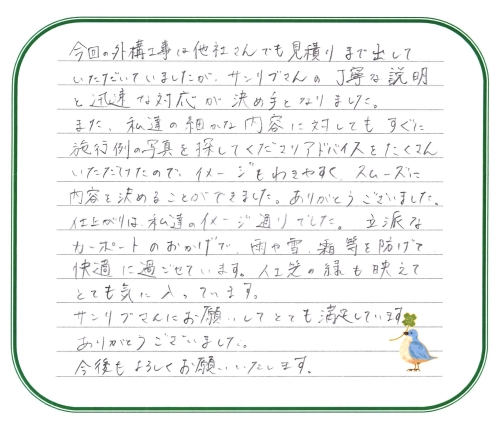 今回の外構工事は他社さんでも見積りまで出して
いただいていましたが、サンリブさんの丁寧な説明
と迅速な対応が決め手となりました。
また、私達の細かな内容に対してもすぐに
施行例の写真を探してくださりアドバイスをたくさん
いただけたので、イメージもわきやすく、スムーズに
内容を決めることができました。ありがとうございました。
仕上がりは、私達のイメージ通りでした。 立派な
カーポートのおかげで、雨や雪、霜等を防げて
快適に過ごせています。人工芝の緑も映えて
とても気に入っています。
サンリブさんにお願いしてとても満足しています。
ありがとうございました。
今後もよろしくお願いいたします。